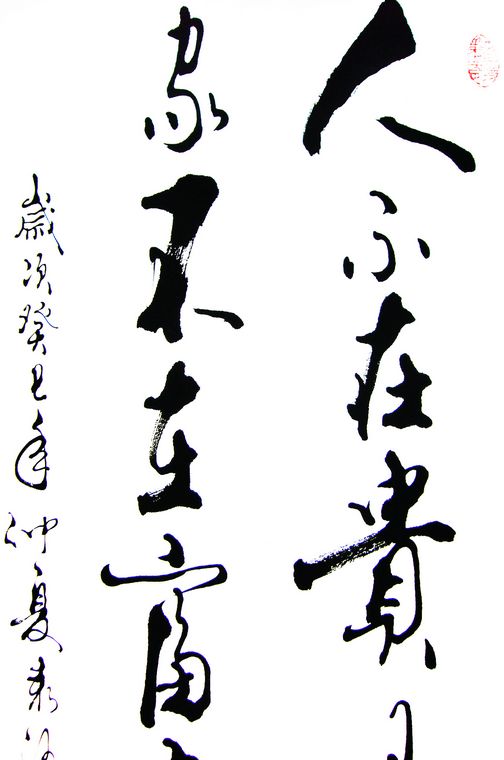 人不在貴
家不在富
歲次癸巳年仲夏